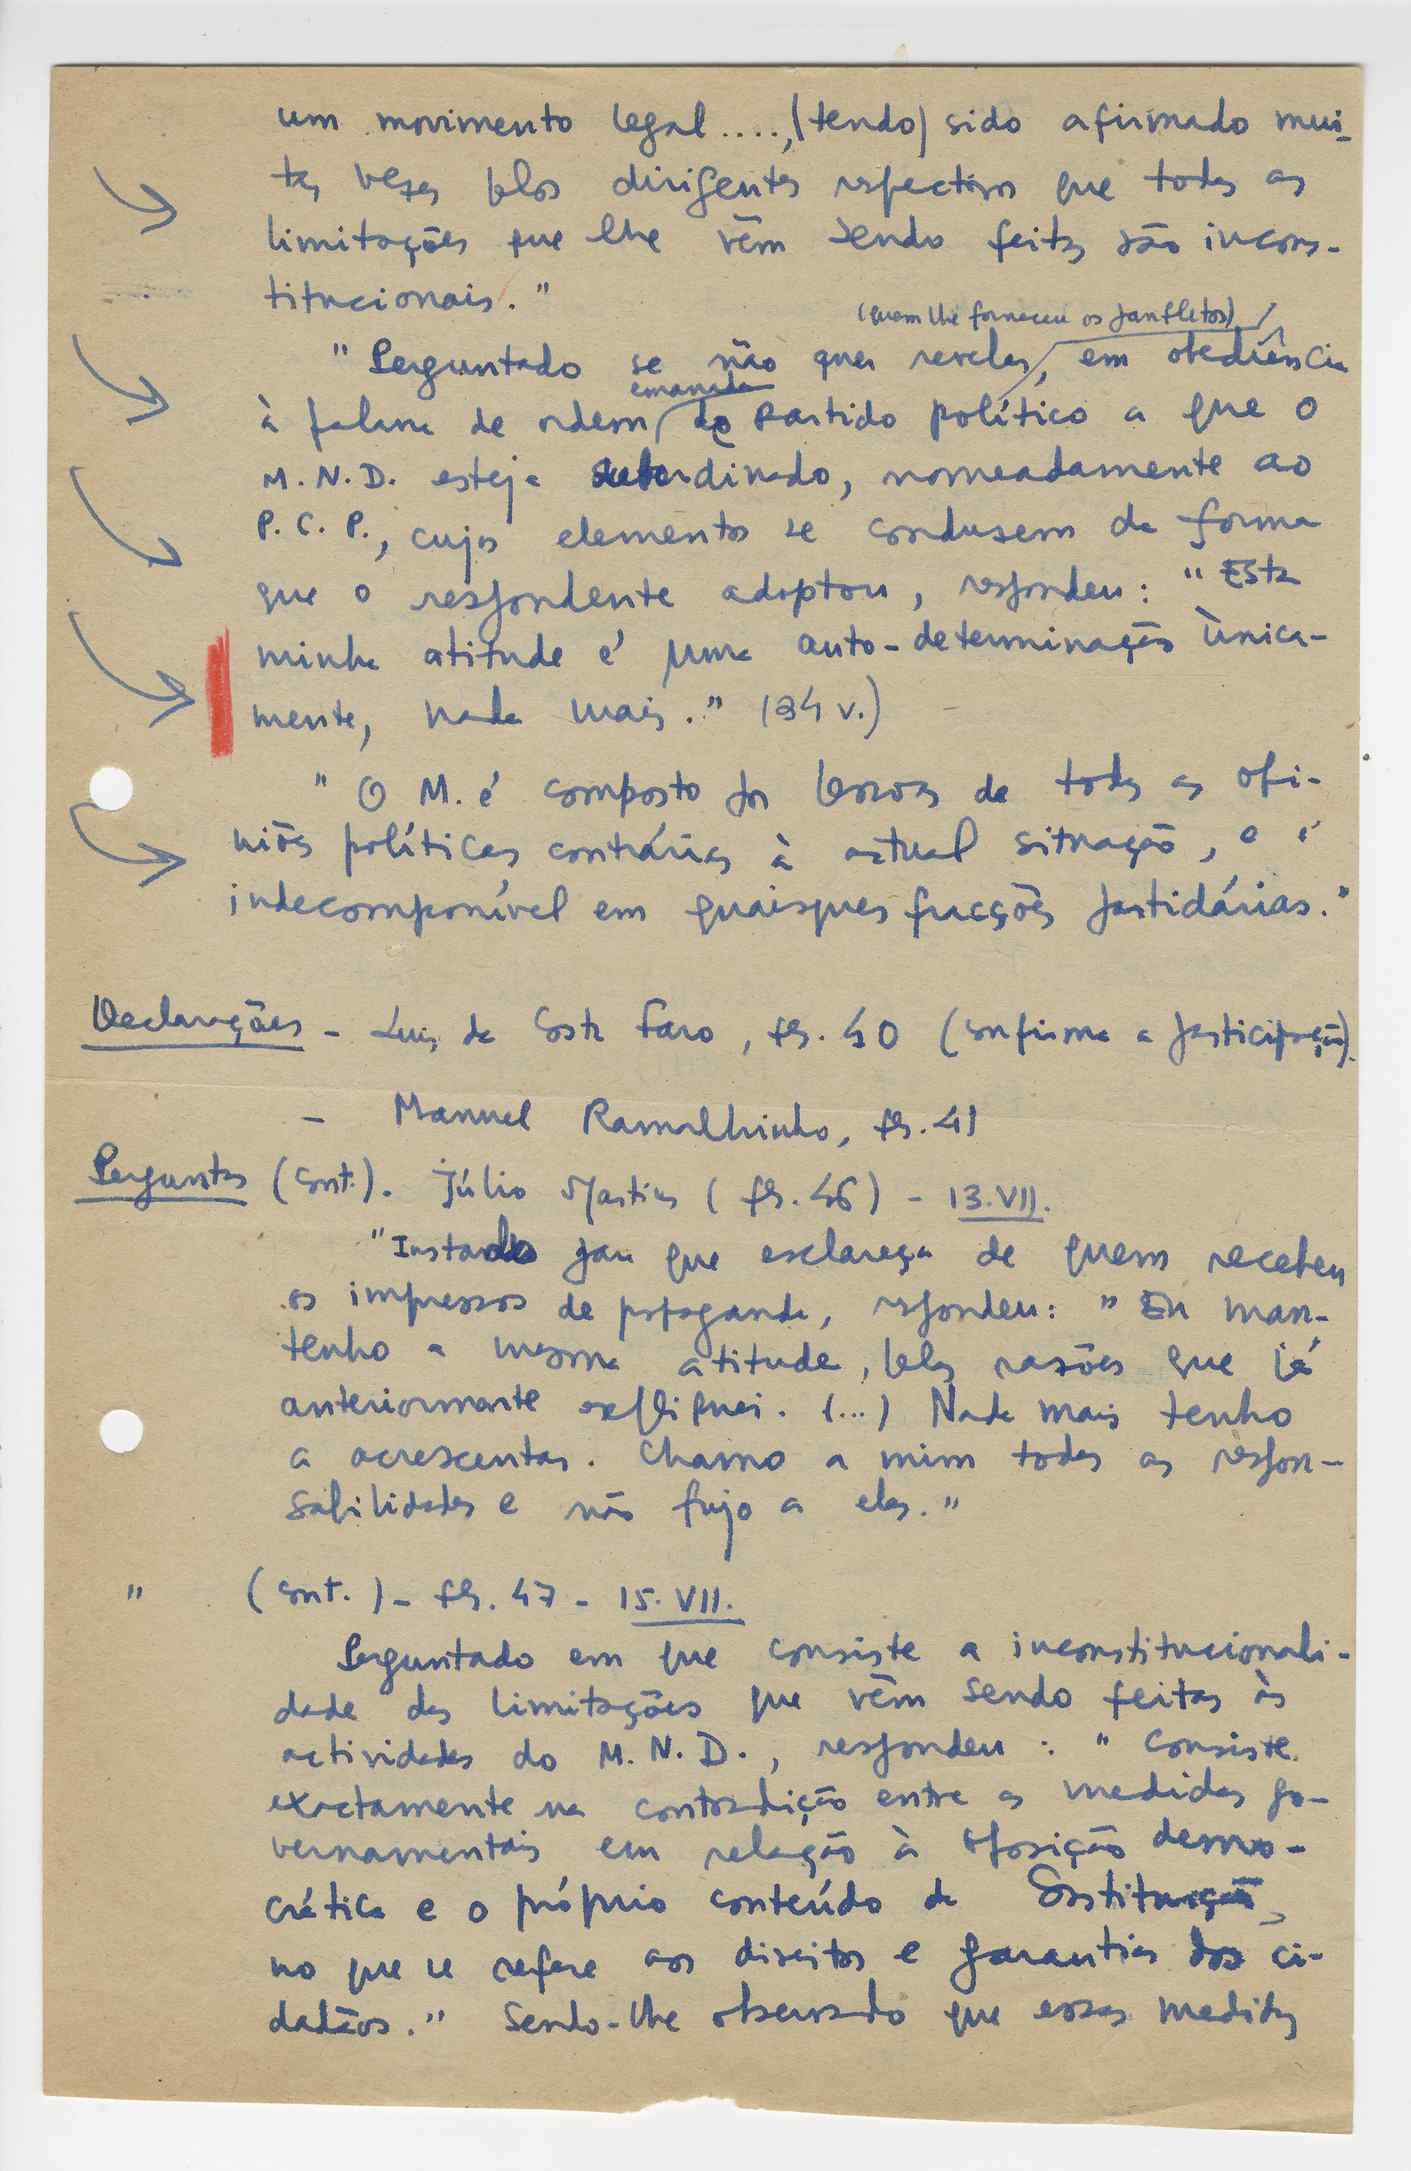 um movimento legal...., (tendo) sido afirmado mui-
tas vezes pelos dirigentes respectivos que todas as
limitações que lhe vêm sendo feitas são incons-
titucionais."
(quem lhe forneceu os panfletos)
"Perguntado se não quer revelar, em obediência
emanada
à palavra de ordem do Partido político a que o
M.N.D. esteja subordinado, nomeadamente ao
P.C.P., cujos elementos se conduzem da forma
que o respondente adoptou, respondeu: "Esta
minha atitude é uma auto-determinação ùnica-
mente, nada mais." (34 v.)
"O M. é composto por pessoas de todas as opi-
niões políticas contrárias à actual situação, e é
indecomponível em quaisquer fracções partidárias."
Declarações - Luis da Costa Faro, fls. 40 (confirma a participação).
- Manuel Ramalhinho, fls. 41
Perguntas (cont.). Júlio Martins (fls. 46) - 13.VII.
"Instado para que esclareça de quem recebeu
os impressos de propaganda, respondeu: "Eu man-
tenho a mesma atitude, pelas razões que já
anteriormente expliquei. (...) Nada mais tenho
a acrescentar. Chamo a mim todas as respon-
sabilidades e não fujo a elas."
" (cont.) - fls. 47 - 15.VII.
Perguntado em que consiste a inconstitucionali-
dade das limitações que vêm sendo feitas às
actividades do M.N.D., respondeu: "Consiste
exactamente na contradição entre as medidas go-
vernamentais em relação à oposição demo-
crática e o próprio conteúdo da Constituição,
no que se refere aos direitos e garantias dos ci-
dadãos." Sendo-lhe observado que essas medidas